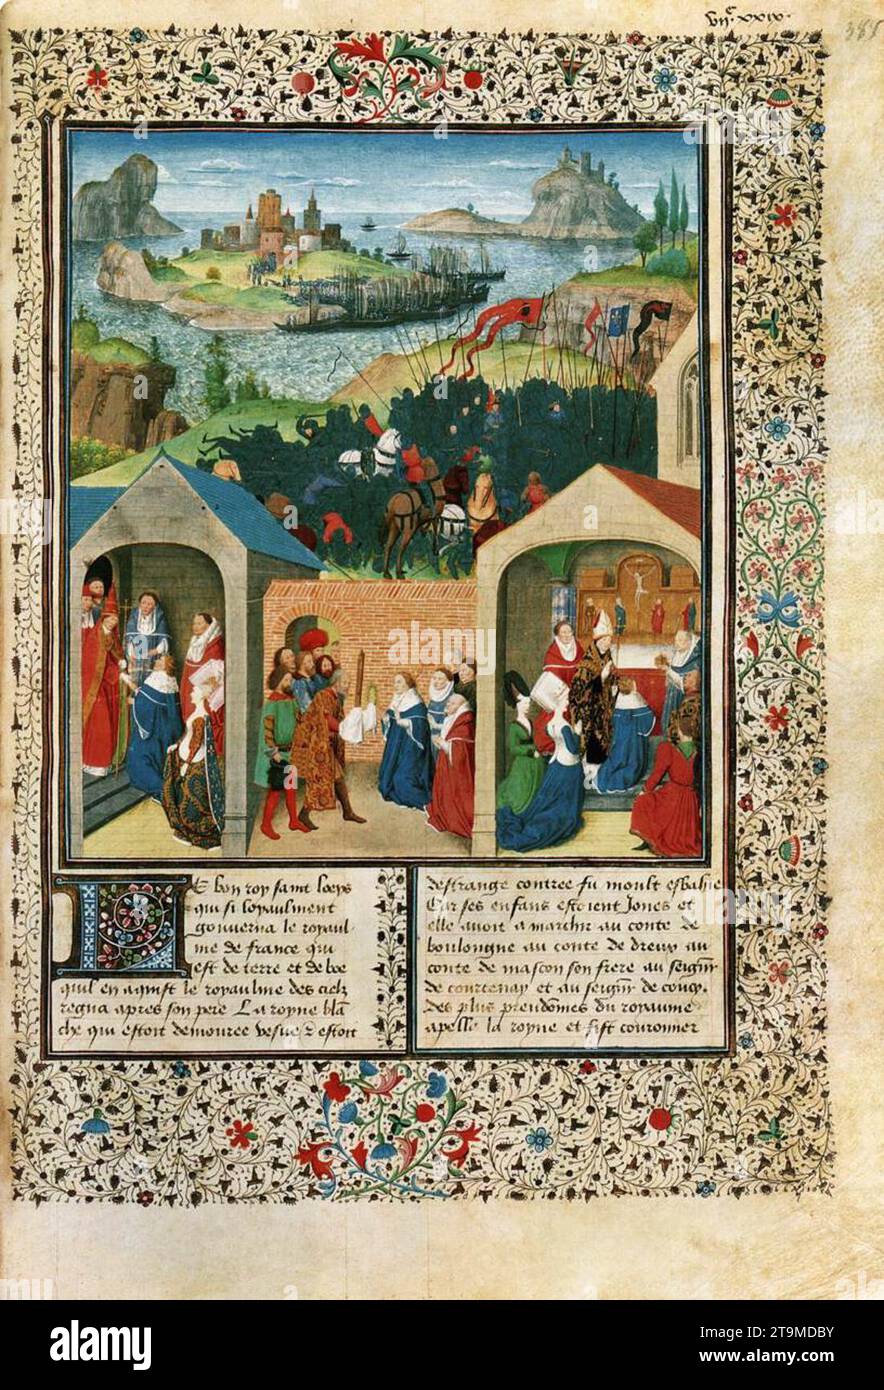 vijc xxix.
385
Le bon roy saint loeys
qui si loyaulment
gouverna le royaul
me de france qui
est de terre et de boe
quil en aquist le royaulme des cielz
regna apres son pere La royne blan
che qui estoit demouree vesve z estoit
destrange contree fu moult esbahie
Car ses enfans estoient Jones et
elle avoit a marchir au conte de
boulongne au conte de dreux au
conte de mascon son frere au seignr
de courtenay et au seignr de coucy.
Des plus preudommes du royaume
apella la royne et fist couronner
alamy
Image ID: 2T9MDBY
www.alamy.com